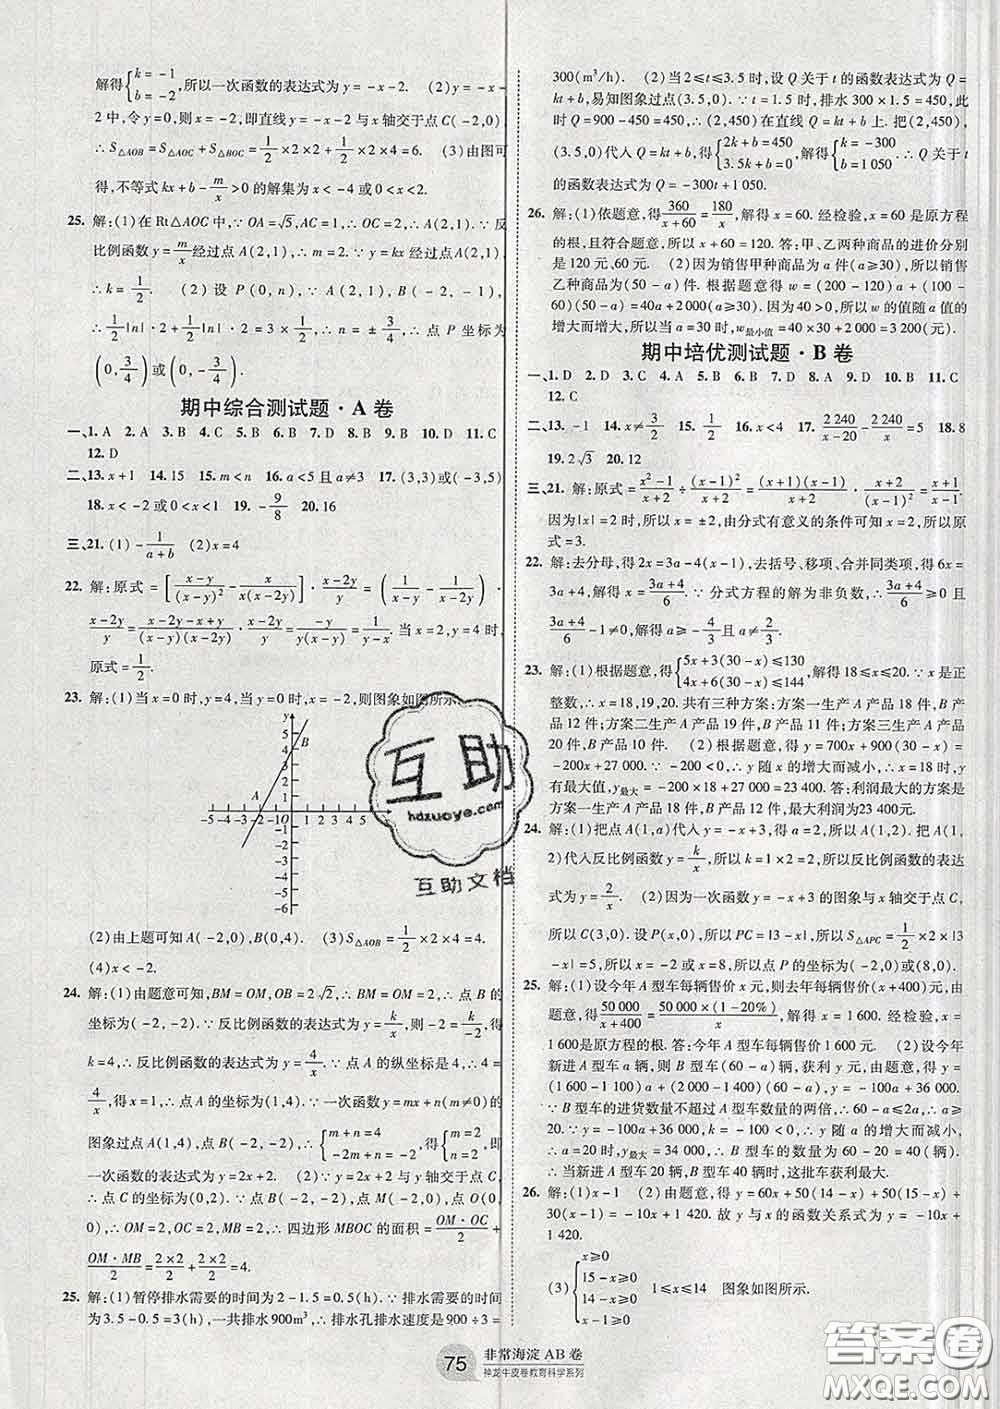 解得{k=-1 b=-2,所以一次函数的表达式为y=-x-2.  (2)y=-x-
2中,令y=0,则x=-2,即直线y=-x-2与x轴交于点C(-2,0)
∴S△AOB=S△AOC+S△BOC=1/2×2×2+1/2×2×4=6.  (3)由图可
得,不等式kx+b-m/x>0的解集为x<-4或0<x<2.
25. 解:(1)在Rt△AOC中,∵OA=√5,AC=1,∴OC=2,∴A(2,1).∵反
比例函数y=m/x经过点A(2,1),∴m=2.∵y=kx经过点A(2,1),
∴k=1/2.  (2)设P(0,n),∵A(2,1),B(-2,-1),
∴1/2|n|·2+1/2|n|·2=3×1/2,∴n=±3/4,∴点P坐标为
(0,3/4)或(0,-3/4).
期中综合测试题·A卷
一、1. A 2. A 3. B 4. C 5. D 6. B 7. D 8. A 9. B 10. D 11. C
12. D
二、13. x+1 14. 15 15. m<n 16. a<5且a≠3 17. (3,3)或(-3,5)
18. x<-2或0<x<1 19. -9/8 20. 16
三、21. (1)-1/(a+b)  (2)x=4
22. 解:原式=[(x-y)/(x-y)²-x/(x(x-2y))]·(x-2y)/y=(1/(x-y)-1/(x-2y))·
(x-2y)/y=(x-2y-x+y)/((x-y)(x-2y))·(x-2y)/y=-y/(y(x-y))=1/(y-x).当x=2,y=4时,
原式=1/2.
23. 解:(1)当x=0时,y=4,当y=0时,x=-2,则图象如图所示.
y
5
4
B
3
2
1
A
-5 -4 -3 -2 -1O 1 2 3 4 5 x
-1
-2
-3
-4
-5
-6
(2)由上题可知A(-2,0),B(0,4).  (3)S△AOB=1/2×2×4=4.
(4)x<-2.
24. 解:(1)由题意可知,BM=OM,OB=2√2,∴BM=OM=2,∴点B的
坐标为(-2,-2).∵反比例函数的表达式为y=k/x,则-2=k/-2,得
k=4,∴反比例函数的表达式为y=4/x.∵点A的纵坐标是4,∴4=
4/x,得x=1,∴点A的坐标为(1,4).∵一次函数y=mx+n(m≠0)的
图象过点A(1,4),点B(-2,-2),∴{m+n=4 -2m+n=-2,得{m=2 n=2,即
一次函数的表达式为y=2x+2.  (2)∵y=2x+2与y轴交于点C,
∴点C的坐标为(0,2).∵点B(-2,-2),点M(-2,0),点O(0,
0),∴OM=2,OC=2,MB=2,∴四边形MBOC的面积=OM·OC/2
+OM·MB/2=2×2/2+2×2/2=4.
25. 解:(1)暂停排水需要的时间为2-1.5=0.5(h).∵排水需要的时间
为3.5-0.5=3(h),一共排水900m³,∴排水孔排水速度为900÷3=
300(m³/h).  (2)当2≤t≤3.5时,设Q关于t的函数表达式为Q=
kt+b,易知图象过点(3.5,0).∵t=1.5时,排水300×1.5=450,此
时Q=900-450=450,∴(2,450)在直线Q=kt+b上.把(2,450),
(3.5,0)代入Q=kt+b,得{2k+b=450 3.5k+b=0,解得{k=-300 b=1 050.∴Q关于t
的函数表达式为Q=-300t+1 050.
26. 解:(1)依题意,得360/(x+60)=180/x,解得x=60.经检验,x=60是原方程
的根,且符合题意,所以x+60=120.答:甲、乙两种商品的进价分别
是120元、60元.  (2)因为销售甲种商品为a件(a≥30),所以销售
乙种商品为(50-a)件.根据题意得w=(200-120)a+(100-
60)(50-a)=40a+2 000(a≥30).因为40>0,所以w的值随a值的
增大而增大,所以当a=30时,w最小值=40×30+2 000=3 200(元).
期中培优测试题·B卷
一、1. D 2. D 3. C 4. A 5. B 6. A 7. D 8. B 9. B 10. B 11. C
12. C
二、13. -1 14. x≠3/2 15. 1/2 16. x<4 17. 2 240/(x-20)-2 240/x=5 18. 8
19. 2√3 20. 12
三、21. 解:原式=(x²-1)/(x+2)÷(x-1)²/(x+2)=(x+1)(x-1)/(x+2)·(x+2)/(x-1)²=(x+1)/(x-1).
因为|x|=2时,所以x=±2,由分式有意义的条件可知x=2,所以原
式=3.
22. 解:去分母,得2x=3a-4(x-1),去括号、移项、合并同类项,得6x=
3a+4,解得x=(3a+4)/6.∵分式方程的解为非负数,∴(3a+4)/6≥0且
(3a+4)/6-1≠0,解得a≥-4/3且a≠2/3.
23. 解:(1)根据题意,得{5x+3(30-x)≤130 4x+6(30-x)≤144,解得18≤x≤20.∵x是正
整数,∴x=18,19,20.共有三种方案:方案一生产A产品18件,B产
品12件;方案二生产A产品19件,B产品11件;方案三生产A产品
20件,B产品10件.  (2)根据题意,得y=700x+900(30-x)=
-200x+27 000.∵-200<0,∴y随x的增大而减小,∴x=18时,y
有最大值,y最大=-200×18+27 000=23 400.答:利润最大的方案是
方案一生产A产品18件,B产品12件,最大利润为23 400元.
24. 解:(1)把点A(1,a)代入y=-x+3,得a=2,所以A(1,2).把A(1,
2)代入反比例函数y=k/x,所以k=1×2=2,所以反比例函数的表达
式为y=2/x.  (2)因为一次函数y=-x+3的图象与x轴交于点C,
所以C(3,0).设P(x,0),所以PC=|3-x|,所以S△APC=1/2×2×|3
-x|=5,所以x=-2或x=8,所以点P的坐标为(-2,0)或(8,0).
25. 解:(1)设今年A型车每辆售价x元,则去年每辆售价(x+400)元,由
题意,得50 000/(x+400)=50 000×(1-20%)/x,解得x=1 600.经检验,x=
1 600是原方程的根.答:今年A型车每辆售价1 600元.  (2)设今年
新进A型车a辆,则B型车(60-a)辆,获利y元,由题意,得y=
(1 600-1 100)a+(2 000-1 400)(60-a),即y=-100a+36 000.
∵B型车的进货数量不超过A型车数量的两倍,∴60-a≤2a,∴a≥
20.∵y=-100a+36 000,k=-100<0,∴y随a的增大而减小,
∴a=20时,y最大=34 000元,∴B型车的数量为60-20=40(辆),
∴当新进A型车20辆,B型车40辆时,这批车获利最大.
26. 解:(1)x-1  (2)由题意,得y=60x+50(14-x)+50(15-x)+
30(x-1)=-10x+1 420.故y与x的函数关系式为y=-10x+
1 420.
(3){x≥0 15-x≥0 14-x≥0 x-1≥0  1≤x≤14  图象如图所示.
互助
hdzuoye.com
互助文档
75
非常海淀AB卷
神龙牛皮卷教育科学系列
答案圈
MXQE.COM